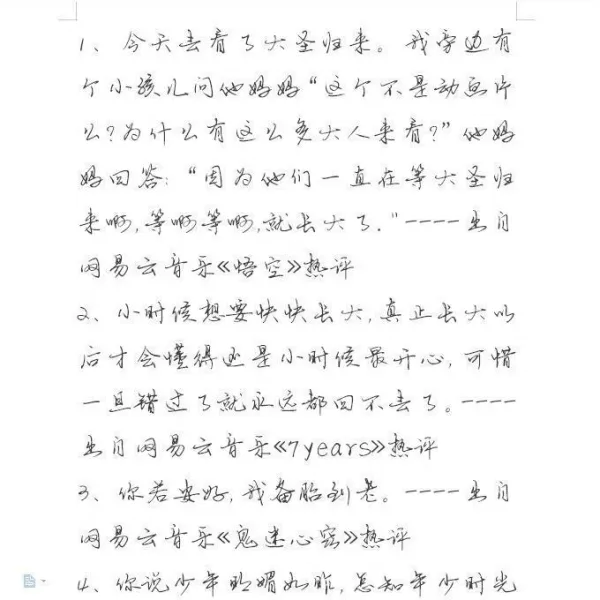 1、今天去看了大圣归来。我旁边有
个小孩儿问他妈妈“这个不是动画片
么?为什么有这么多大人来看?”他妈
妈回答:“因为他们一直在等大圣归
来啊,等啊等啊,就长大了."----出自
网易云音乐《悟空》热评
2、小时候想要快快长大,真正长大以
后才会懂得还是小时候最开心,可惜
一旦错过了就永远都回不去了。----
出自网易云音乐《7years》热评
3、你若安好,我备胎到老。----出自
网易云音乐《鬼迷心窍》热评
4、你说少年明媚如昨,怎知年少时光